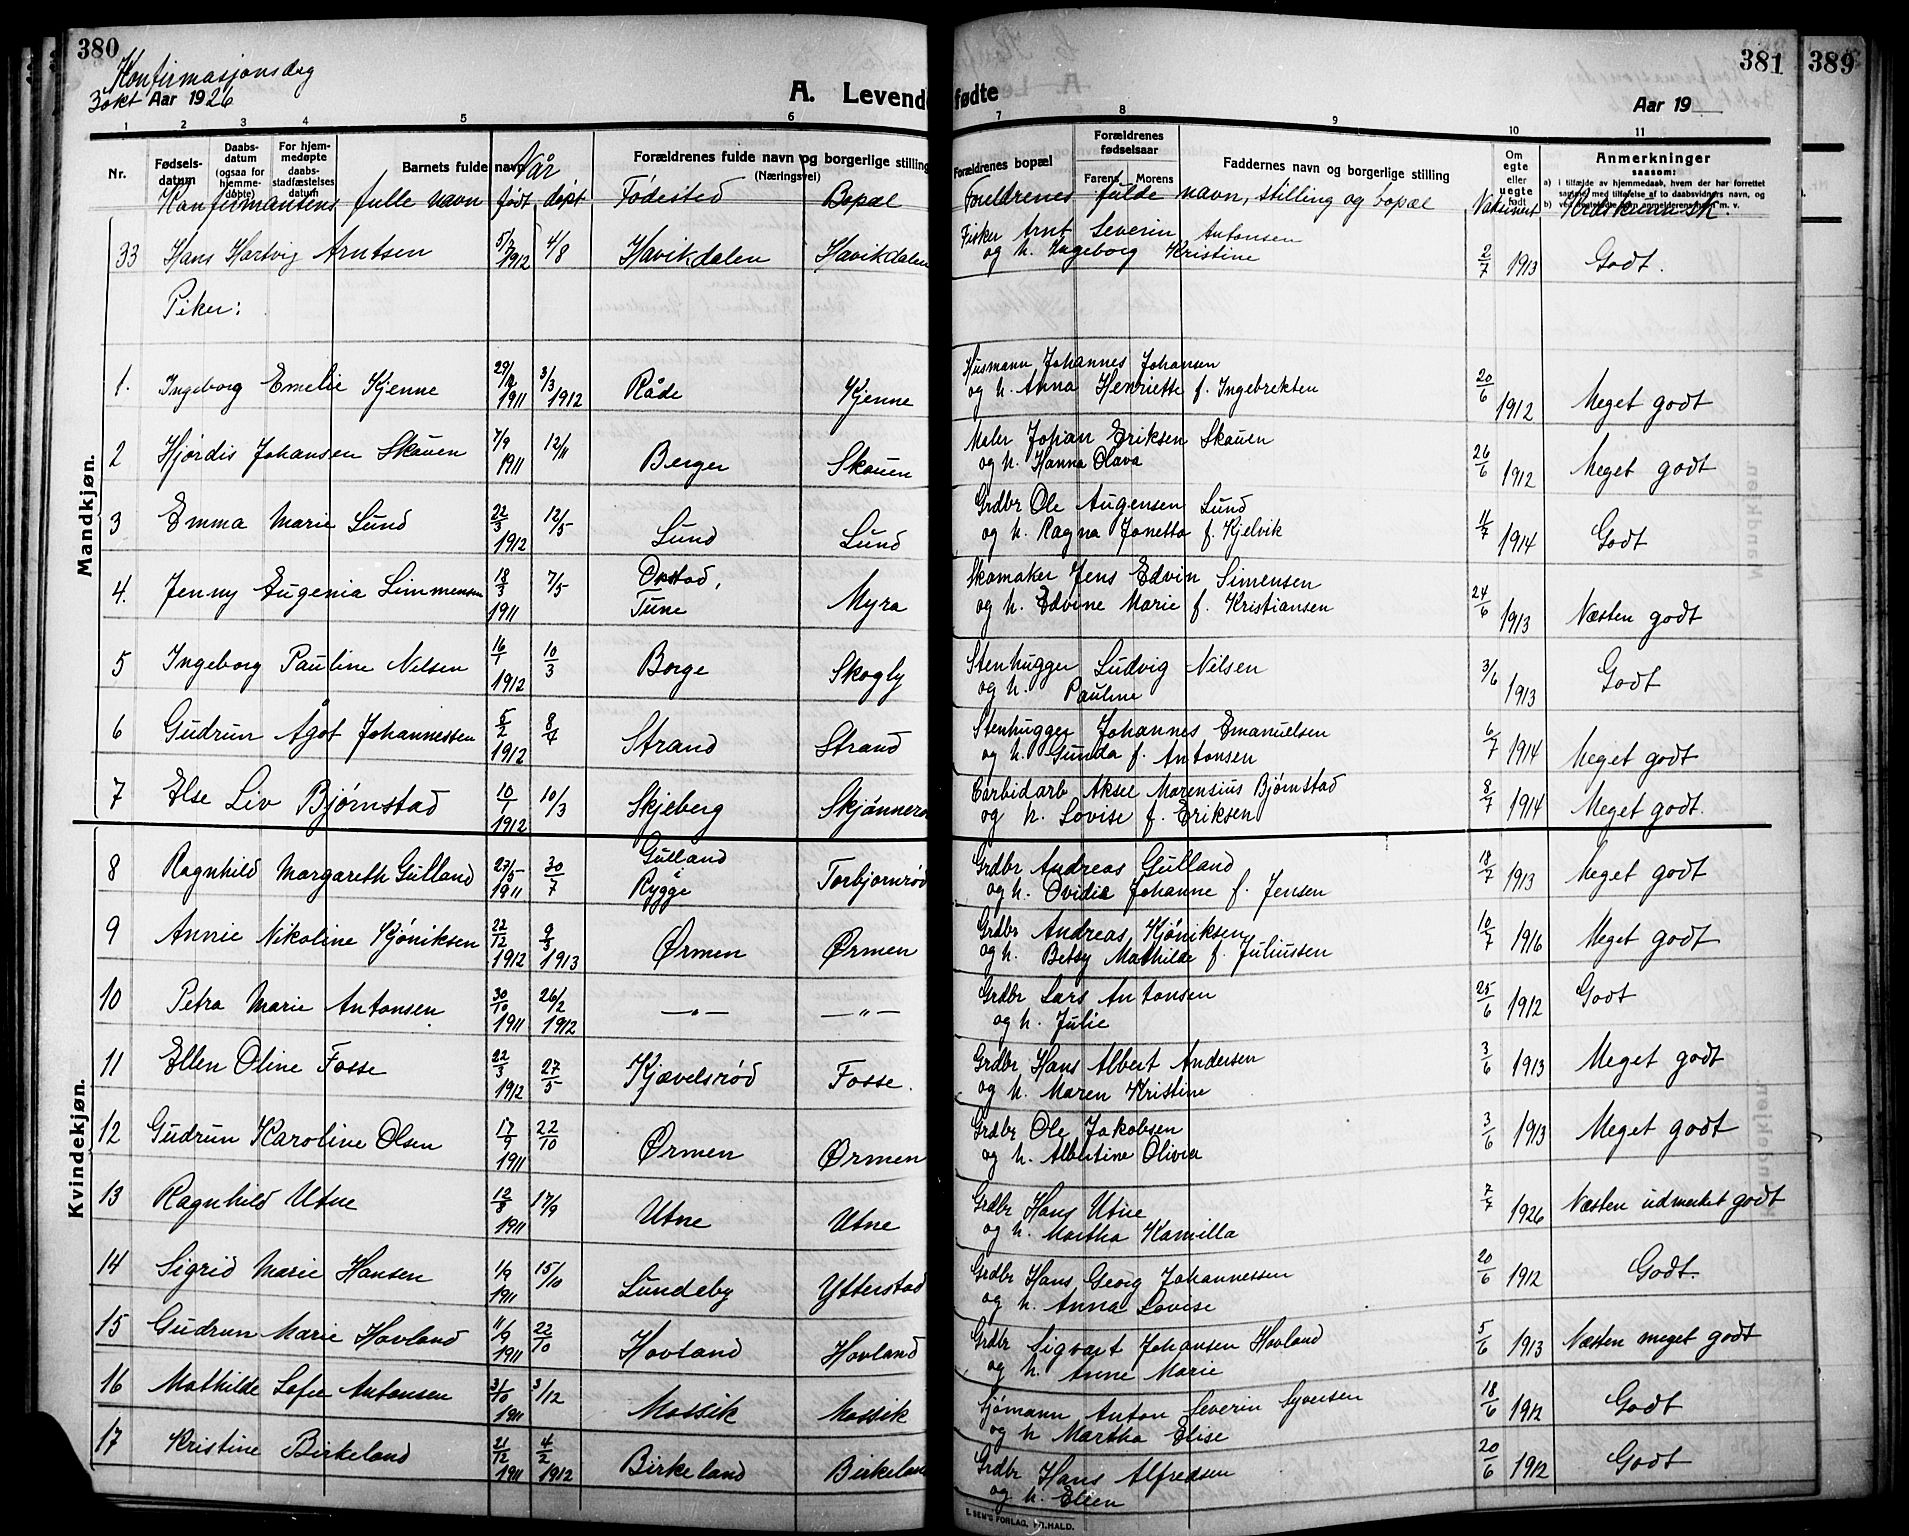 380
Konfirmasjonsdag
3 okt Aar 1926
A. Levendefødte
381
389
Aar 19
1 2 3 4 5 6 7 8 9 10 11
Nr.
Fødselsdatum
Daabsdatum (ogsaa for hjemmedøpte)
For hjemmedøpte daabsstadfæstelses datum
Barnets fulde navn
Forældrenes fulde navn og borgerlige stilling (Næringsvei)
Forældrenes bopæl
Forældrenes fødselsaar
Farens Morens
Faddernes navn og borgerlige stilling
Om egte eller uegte født
Anmerkninger saasom:
a) i tilfælde av hjemmedaab, hvem der har forrettet samme med tilføielse av to daabsvidners navn, og
b) ved dødfødte den anmelderens navn m. v.
Konfirmantens fulle navn
Når født døpt
Fødested
Bopæl
Foreldrenes fulde navn, stilling og bopæl
Vaksinert
Kristkunnsk.
Mandkjøn.
Kvindekjøn.
33 Hans Hartvig Arntsen 5/7 1912 4/8 Havikdalen Havikdalen Fisker Arnt Severin Antonsen
og h. Ingeborg Kristine 2/7 1913 Godt.
Piker:
1. Ingeborg Emelie Kjenne 29/9 1911 3/3 1912 Råde Kjenne Husmann Johannes Johansen
og h. Anna Henriette f. Ingebrekten 20/6 1912 Meget godt
2 Hjørdis Johansen Skauen 7/9 1911 12/11 Berger Skauen Maler Johan Eriksen Skauen
og h. Hanna Olava 26/6 1912 Meget godt
3 Emma Marie Lund 22/3 1912 12/5 Lund Lund Grdbr Ole Augensen Lund
og h. Ragna Jonetta f. Kjelvik 11/7 1914 Godt
4. Jenny Eugenia Simmensen 18/3 1911 7/5 Ovstad, Tune Myra Skomaker Jens Edvin Simensen
og h. Edvine Marie f. Kristiansen 24/6 1913 Næsten godt
5 Ingeborg Pauline Nilsen 16/1 1912 10/3 Borge Skogly Stenhugger Ludvig Nilsen
og h. Pauline 3/6 1913 Godt
6 Gudrun Ågot Johannessen 5/2 1912 8/4 Strand Strand Stenhugger Johannes Emanuelsen
og h. Gunda f. Antonsen 6/7 1914 Meget godt
7 Else Liv Bjørnstad 10/1 1912 10/3 Skjeberg Skjånnerø Carbidarb Aksel Marensius Bjørnstad
og h. Lovise f. Eriksen 8/7 1914 Meget godt.
8 Ragnhild Margareth Gulland 27/5 1911 30/7 Gulland i Rygge Torbjørnrød Grdbr Andreas Gulland
og h. Ovidia Johanne f. Jensen 18/7 1913 Meget godt
9 Annie Nikoline Kjøniksen 22/12 1912 9/3 1913 Ørmen Ørmen Grdbr Andreas Kjøniksen
og h. Betsy Mathilde f. Juliussen 10/7 1916 Meget godt
10 Petra Marie Antonsen 30/10 1911 26/2 1912 —"— —"— Grdbr Lars Antonsen
og h. Julie 25/6 1912 Godt
11 Ellen Oline Fosse 22/3 1912 27/5 Kjævelsrød Fosse. Grdbr Hans Albert Andersen
og h. Maren Kristine 3/6 1913 Meget godt
12 Gudrun Karoline Olsen 17/9 1911 22/10 Ørmen Ørmen Grdbr Ole Jakobsen
og h. Albertine Olivia 3/6 1913 Meget godt
13 Ragnhild Utne 12/8 1911 17/9 Utne Utne Grdbr Hans Utne
og h. Martha Kamilla 7/7 1926 Næsten udmerket godt
14 Sigrid Marie Hansen 1/9 1911 15/10 Lundeby Ytterstad Grdbr Hans Georg Johannessen
og h. Anna Lovise 20/6 1912 Godt.
15 Gudrun Marie Hovland 11/9 1911 22/10 Hovland Hovland Grdbr Sigvart Johansen Hovland
og h. Anne Marie 5/6 1913 Næsten meget godt
16 Mathilde Sofie Antonsen 3/10 1911 3/12 Mossik Mossik Sjømann Anton Severin Syversen
og h Martha Elise 18/6 1912 Godt
17 Kristine Birkeland 21/12 1911 4/2 1912 Birkeland Birkeland Grdbr Hans Alfredsen
og h. Ellen 20/6 1912 Godt
E. SEM'S FORLAG, FR.HALD.